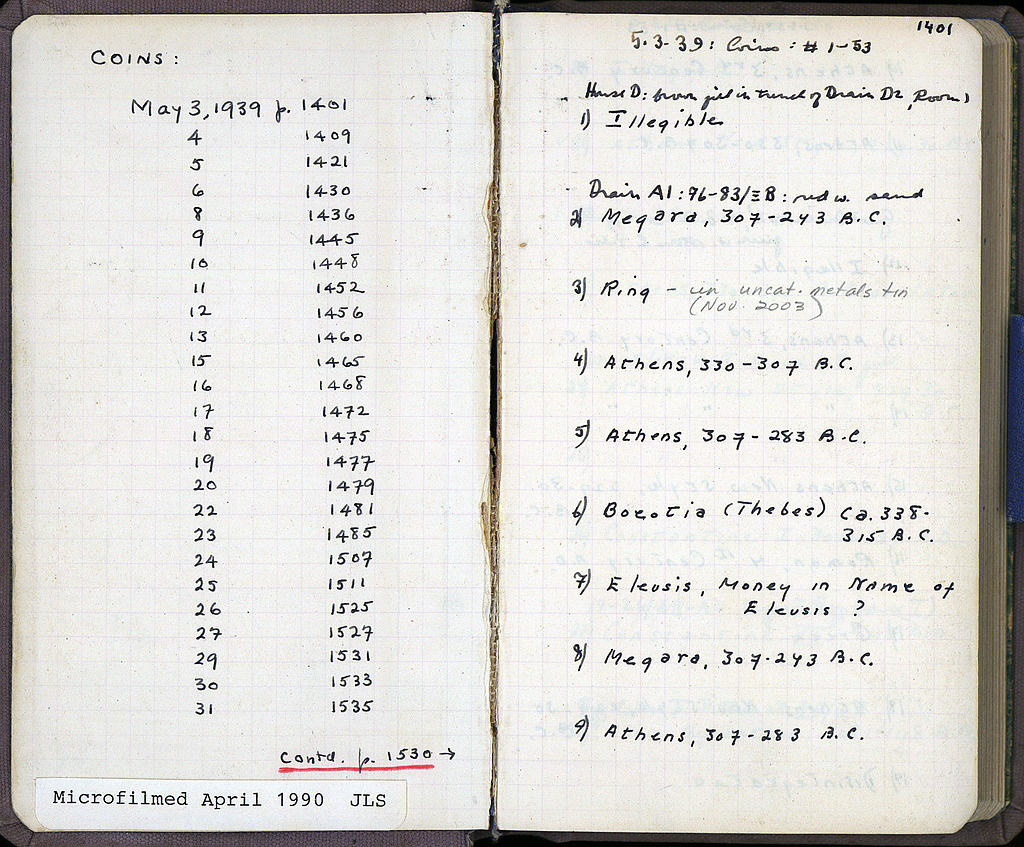 COINS:
May 3, 1939 p. 1401
4 1409
5 1421
6 1430
8 1436
9 1445
10 1448
11 1452
12 1456
13 1460
15 1465
16 1468
17 1472
18 1475
19 1477
20 1479
22 1481
23 1485
24 1507
25 1511
26 1525
27 1527
29 1531
30 1533
31 1535
Contd. p. 1530 →
Microfilmed April 1990 JLS
1401
5.3.39: Coins: # 1-53
House D: from fill in trench of Drain D2, Room 1
1) Illegible
Drain A1: 76-83/ΞB: red w. sand
2) Megara, 307-243 B.C.
3) Ring - in uncat. metals tin
(Nov. 2003)
4) Athens, 330-307 B.C.
5) Athens, 307-283 B.C.
6) Boeotia (Thebes) Ca. 338-
315 B.C.
7) Eleusis, Money in Name of
Eleusis ?
8) Megara, 307-243 B.C.
9) Athens, 307-283 B.C.